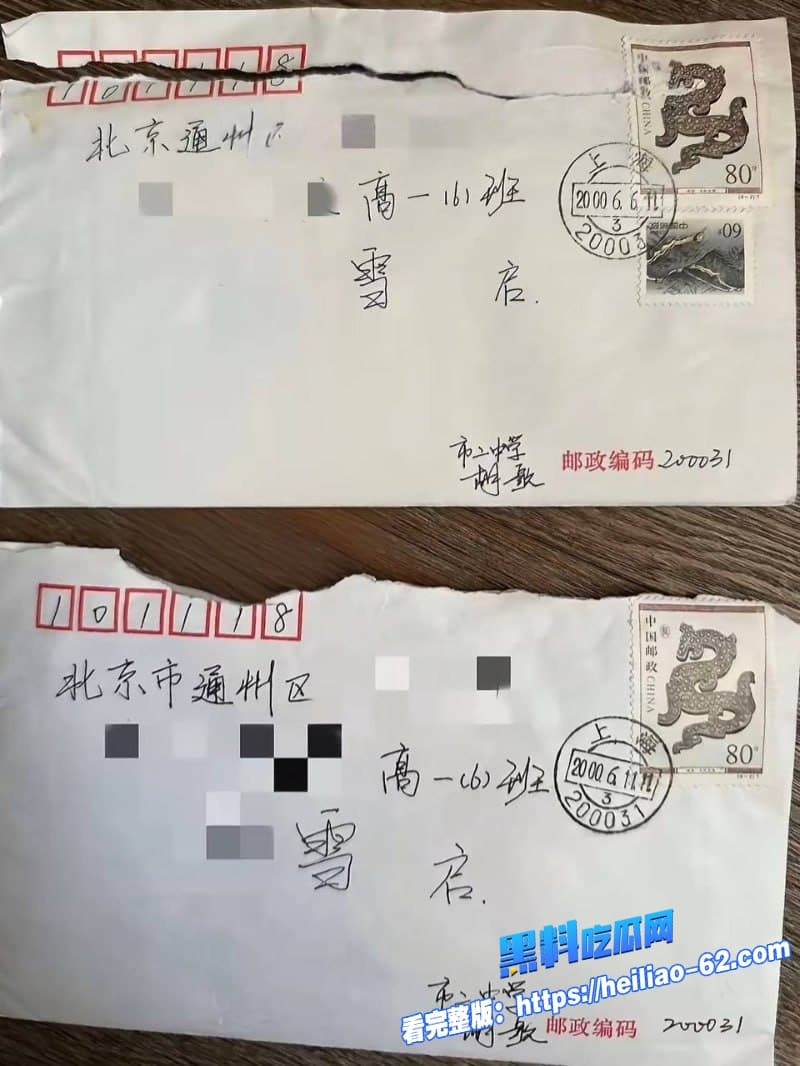 101118
北京通州区
高一(6)班
雪 启.
中国邮政 CHINA
80分
上海
2000.6.6.11
3
200031
中国邮政
60分
市二中学
胡歌
邮政编码 200031
101118
北京市通州区
高一(6)班
雪 启.
中国邮政 CHINA
80分
上海
2000.6.11.11
3
200031
市二中学
胡歌
邮政编码 200031
黑料吃瓜网
看完整版：https://heiliao-62.com